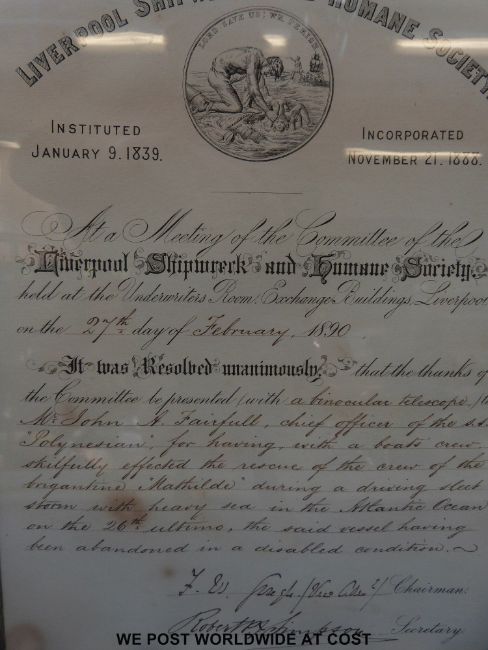 LIVERPOOL SHIPWRECK AND HUMANE SOCIETY.
LORD SAVE US: WE PERISH
INSTITUTED
JANUARY 9. 1839.
INCORPORATED
NOVEMBER 21. 1888.
At a Meeting of the Committee of the
Liverpool Shipwreck and Humane Society,
held at the Underwriters Room, Exchange Buildings, Liverpool
on the 27th day of February, 1890
It was Resolved unanimously, that the thanks of
the Committee be presented (with a binocular telescope)
Mr. John A. Fairfull, chief officer of the s.s.
"Polynesian", for having, with a boats crew,
skilfully effected the rescue of the crew of the
brigantine "Mathilde" during a driving sleet
storm with heavy sea in the Atlantic Ocean
on the 26th ultimo, the said vessel having
been abandoned in a disabled condition.
Chairman:
Secretary
WE POST WORLDWIDE AT COST